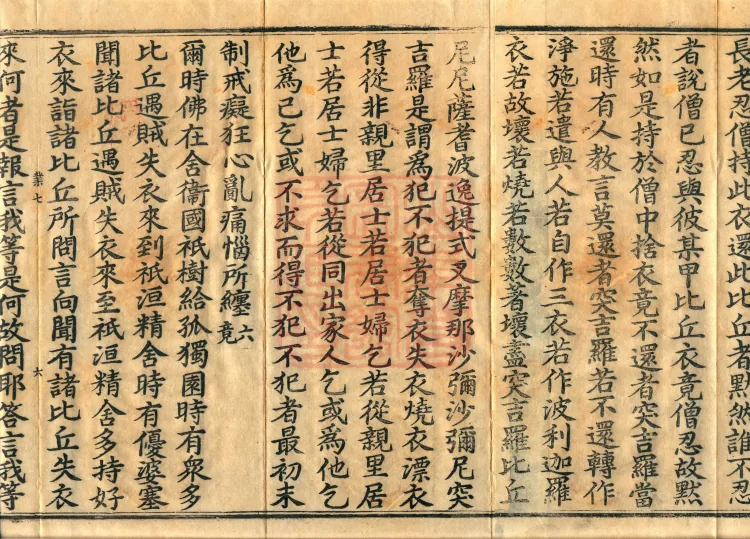 長老忍僧持此衣還此比丘者默然誰不忍
者說僧已忍與彼某甲比丘衣竟僧忍故默
然如是持於僧中捨衣竟不還者突吉羅當
還時有人教言莫還者突吉羅若不還轉作
淨施若遣與人若自作三衣若作波利迦羅
衣若故壞若燒若數數著壞盡突吉羅比丘
尼尼薩耆波逸提式叉摩那沙彌沙彌尼突
吉羅是謂為犯不犯者奪衣失衣燒衣漂衣
得從非親里居士若居士婦乞若從親里居
士若居士婦乞若從同出家人乞或為他乞
他為己乞或不求而得不犯不犯者最初未
制戒癡狂心亂痛惱所纏六竟
爾時佛在舍衛國祇樹給孤獨園時有眾多
比丘遇賊失衣來到祇洹精舍時有優婆塞
聞諸比丘遇賊失衣來至祇洹精舍多持好
衣來詣諸比丘所問言向聞有諸比丘失衣
業七 六
來何者是報言我等是何故問耶答言我等